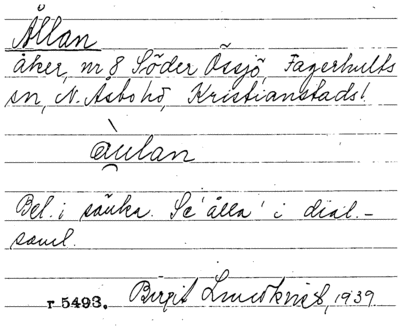 Ållan
åker, nr 8 Söder Össjö, Fagerhults
sn, N. Åsbo hd, Kristianstads l
àulan
Bel. i sänka. Se 'ålla' i dial.-
saml.
r 5493. Birgit 1939